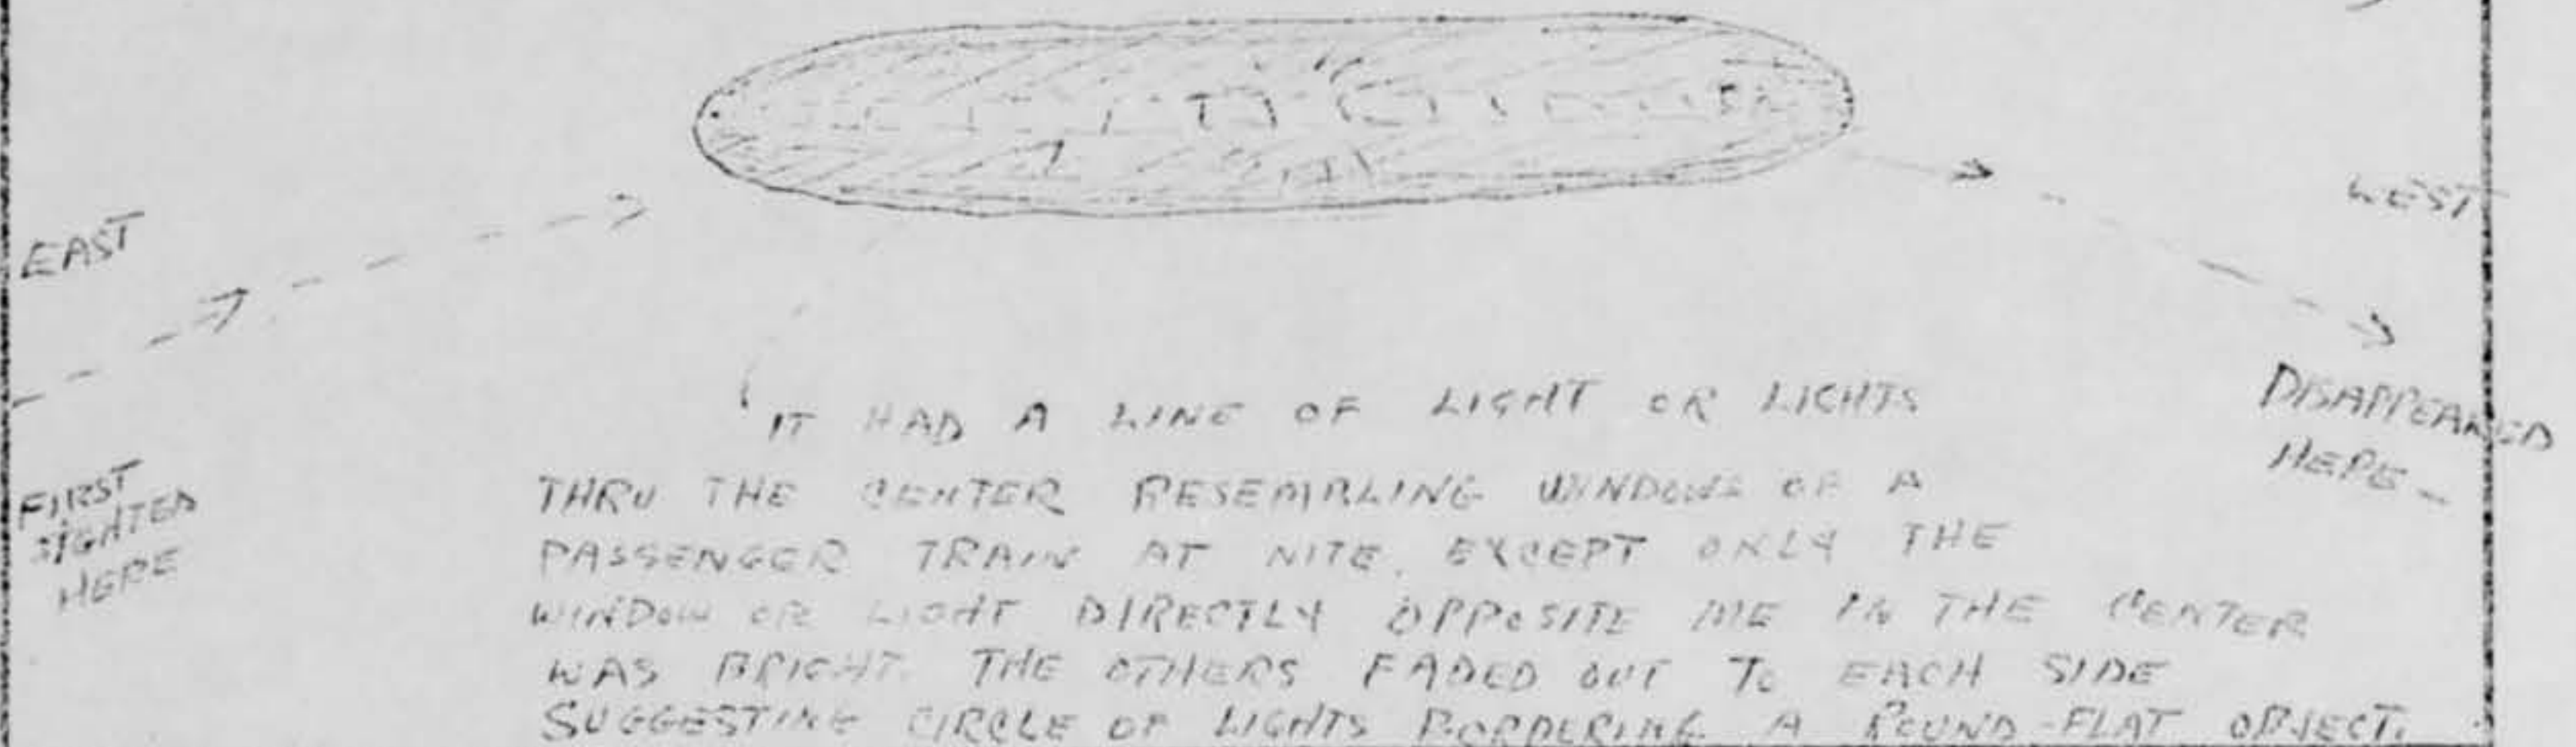 EAST
WEST
FIRST
SIGHTED
HERE
DISAPPEARED
HERE -
IT HAD A LINE OF LIGHT OR LIGHTS
THRU THE CENTER RESEMBLING WINDOWS OF A
PASSENGER TRAIN AT NITE. EXCEPT ONLY THE
WINDOW OR LIGHT DIRECTLY OPPOSITE ME IN THE CENTER
WAS BRIGHT. THE OTHERS FADED OUT TO EACH SIDE
SUGGESTING CIRCLE OF LIGHTS BORDERING A ROUND-FLAT OBJECT.